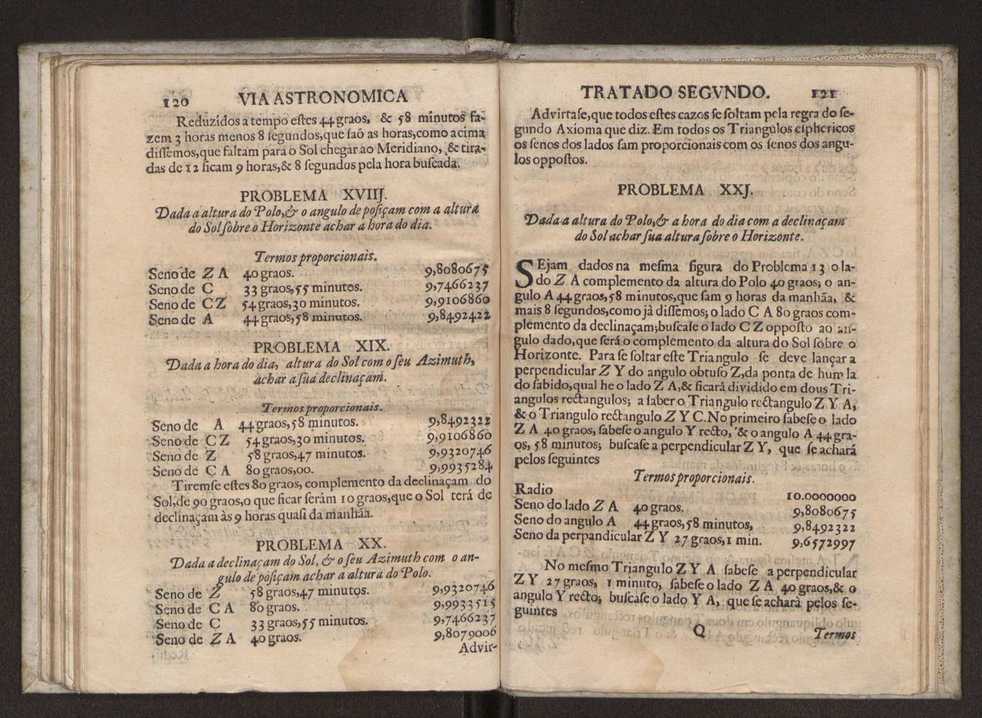 120 VIA ASTRONOMICA
Reduzidos a tempo estes 44 graos, & 58 minutos fa-
zem 3 horas menos 8 segundos, que saõ as horas, como acima
dissemos, que faltam para o Sol chegar ao Meridiano, & tira-
das de 12 ficam 9 horas, & 8 segundos pela hora buscada.
PROBLEMA XVIIJ.
Dada a altura do Polo, & o angulo de posiçam com a altura
do Sol sobre o Horizonte achar a hora do dia.
Termos proporcionais.
Seno de Z A 40 graos. 9,8080675
Seno de C 33 graos, 55 minutos. 9,7466237
Seno de C Z 54 graos, 30 minutos. 9,9106860
Seno de A 44 graos, 58 minutos. 9,8492422
PROBLEMA XIX.
Dada a hora do dia, altura do Sol com o seu Azimuth,
achar a sua declinaçam.
Termos proporcionais.
Seno de A 44 graos, 58 minutos. 9,8492322
Seno de C Z 54 graos, 30 minutos. 9,9106860
Seno de Z 58 graos, 47 minutos. 9,9320746
Seno de C A 80 graos, 00. 9,9935284
Tiremse estes 80 graos, complemento da declinaçam do
Sol, de 90 graos, o que ficar serám 10 graos, que o Sol terá de
declinaçam às 9 horas quasi da manhãa.
PROBLEMA XX.
Dada a declinaçam do Sol, & o seu Azimuth com o an-
gulo de posiçam achar a altura do Polo.
Seno de Z 58 graos, 47 minutos. 9,9320746
Seno de C A 80 graos. 9,9933515
Seno de C 33 graos, 55 minutos. 9,7466237
Seno de Z A 40 graos. 9,8079006
Advir-
TRATADO SEGVNDO. 121
Advirtase, que todos estes cazos se soltam pela regra do se-
gundo Axioma que diz. Em todos os Triangulos esphericos
os senos dos lados sam proporcionais com os senos dos angu-
los oppostos.
PROBLEMA XXJ.
Dada a altura do Polo, & a hora do dia com a declinaçam
do Sol achar sua altura sobre o Horizonte.
SEjam dados na mesma figura do Problema 13 o la-
do Z A complemento da altura do Polo 40 graos; o an-
gulo A 44 graos, 58 minutos, que sam 9 horas da manhãa, &
mais 8 segundos, como jà dissemos; o lado C A 80 graos com-
plemento da declinaçam; buscase o lado C Z opposto ao an-
gulo dado, que será o complemento da altura do Sol sobre o
Horizonte. Para se soltar este Triangulo se deve lançar a
perpendicular Z Y do angulo obtuso Z, da ponta de hum la
do sabido, qual he o lado Z A, & ficará dividido em dous Tri-
angulos rectangulos; a saber o Triangulo rectangulo Z Y A,
& o Triangulo rectangulo Z Y C. No primeiro sabese o lado
Z A 40 graos, sabese o angulo Y recto, & o angulo A 44 gra-
os, 58 minutos; buscase a perpendicular Z Y, que se achará
pelos seguintes
Termos proporcionais.
Radio 10.0000000
Seno do lado Z A 40 graos. 9,8080675
Seno do angulo A 44 graos, 58 minutos, 9,8492322
Seno da perpandicular Z Y 27 graos, 1 min. 9,6572997
No mesmo Triangulo Z Y A sabese a perpendicular
Z Y 27 graos, 1 minuto, sabese o lado Z A 40 graos, & o
angulo Y recto; buscase o lado Y A, que se achará pelos se-
guintes
Q Termos